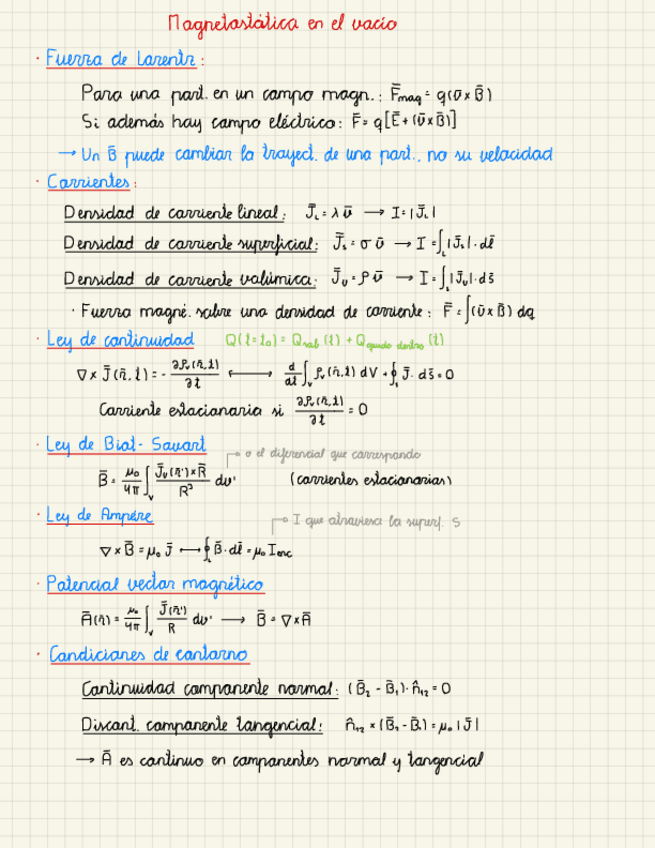 Magnetostática en el vacío
· Fuerza de Lorentz:
Para una part. en un campo magn.: F̄mag = q(ῡ × B̄)
Si además hay campo eléctrico: F̄ = q[Ē + (ῡ × B̄)]
→ Un B̄ puede cambiar la trayect. de una part., no su velocidad
· Corrientes:
Densidad de corriente lineal: J̄ₗ = λ ῡ → I = |J̄ₗ|
Densidad de corriente superficial: J̄ₛ = σ ῡ → I = ∫ₗ |J̄ₛ| · dl̄
Densidad de corriente volúmica: J̄ᵥ = ρ ῡ → I = ∫ₛ |J̄ᵥ| · ds̄
· Fuerza magné. sobre una densidad de corriente: F̄ = ∫(ῡ × B̄) dq
· Ley de continuidad Q(t=t₀) = Qsale(t) + Qqueda dentro(t)
∇ × J̄(r̄,t) = - ∂ρᵥ(r̄,t)/∂t ⟷ d/dt ∫ᵥ ρᵥ(r̄,t) dV + ∮ₛ J̄ · ds̄ = 0
Corriente estacionaria si ∂ρᵥ(r̄,t)/∂t = 0
· Ley de Biot-Savart
→ o el diferencial que corresponda
B̄ = μ₀/4π ∫ᵥ J̄ᵥ(r̄') × R̄/R³ dv' (corrientes estacionarias)
· Ley de Ampére
→ I que atraviesa la superf. S
∇ × B̄ = μ₀ J̄ ⟷ ∮ₗ B̄ · dl̄ = μ₀ Ienc
· Potencial vector magnético
Ā(r̄) = μ₀/4π ∫ᵥ J̄(r̄')/R dv' → B̄ = ∇ × Ā
· Condiciones de contorno
Continuidad componente normal: (B̄₂ - B̄₁) · n̂₁₂ = 0
Discont. componente tangencial: n̂₁₂ × (B̄₁ - B̄₂) = μ₀ |J̄|
→ Ā es continuo en componentes normal y tangencial